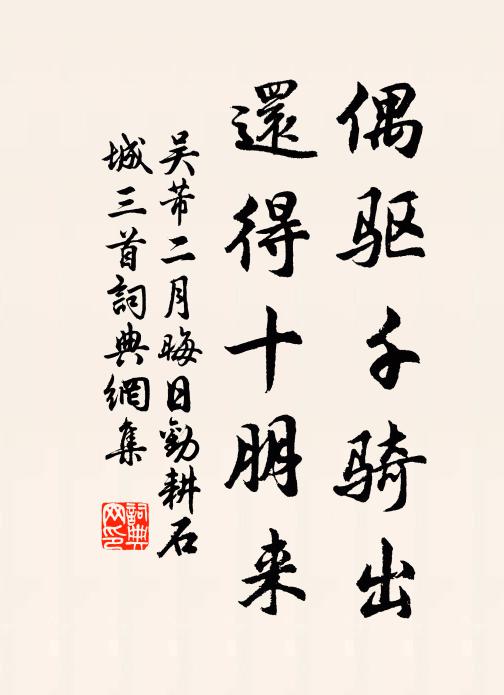 偶驱千骑出
還得十朋来
吴芾二月晦日勸耕石
城三首詞典網集
詞典
网印